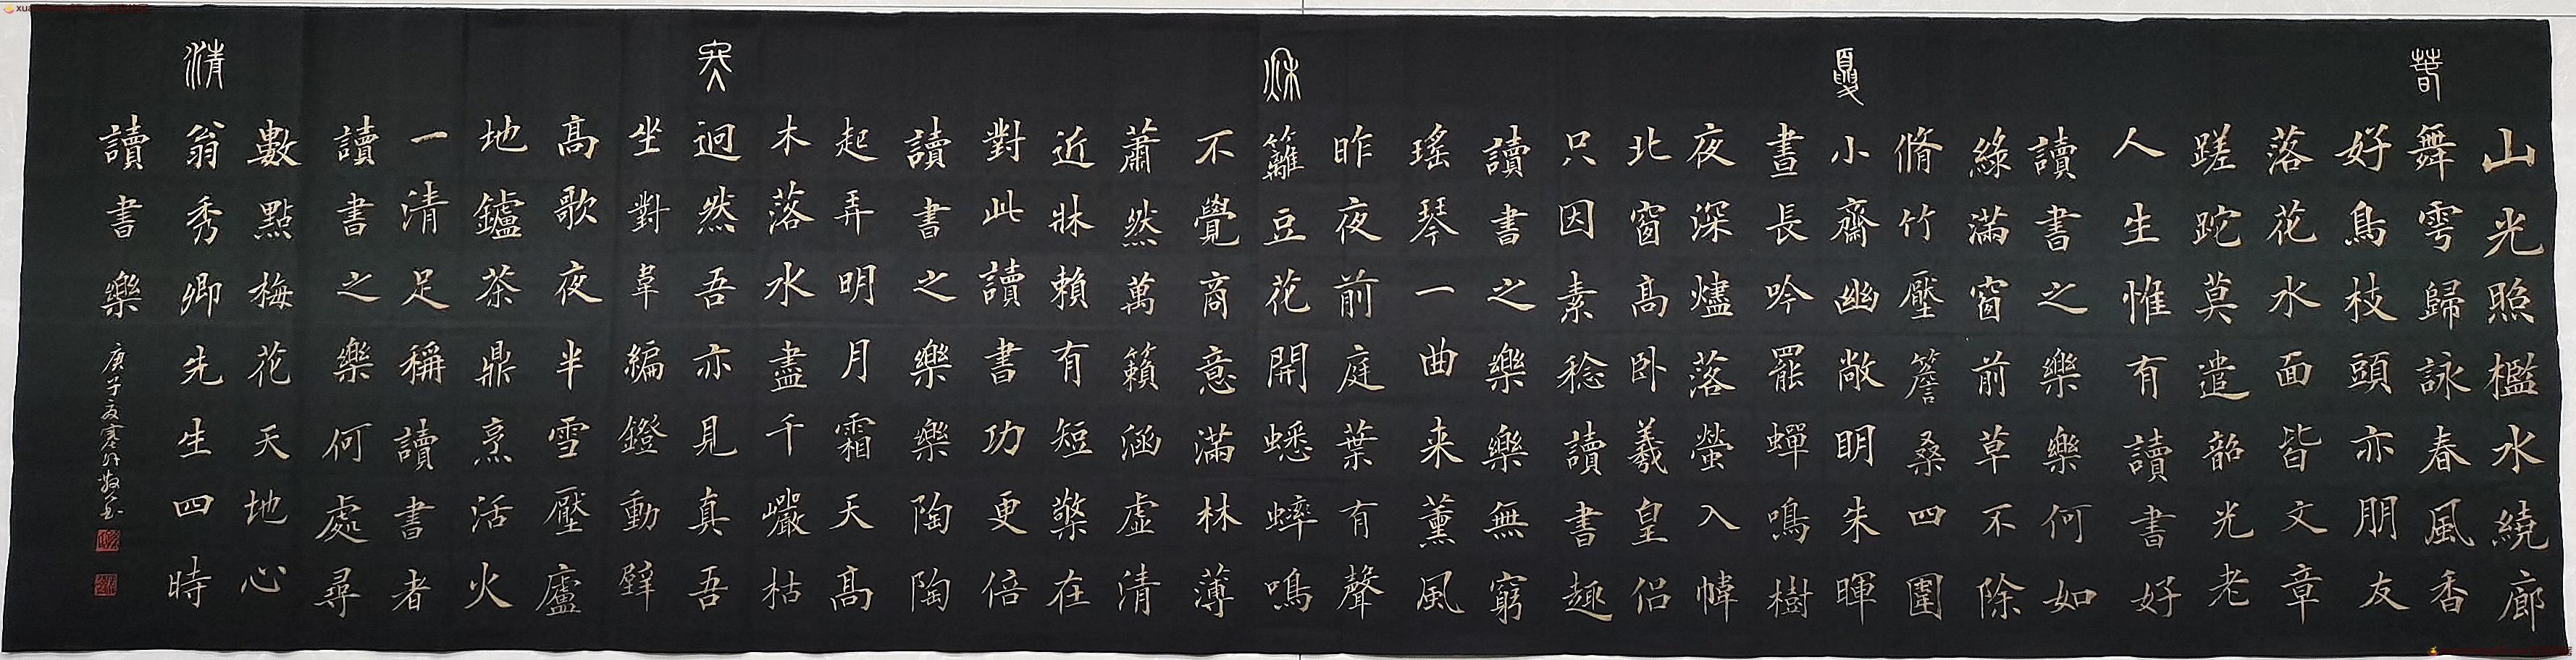 春
山光照檻水繞廊
舞雩歸詠春風香
好鳥枝頭亦朋友
落花水面皆文章
蹉跎莫遣韶光老
人生惟有讀書好
讀書之樂樂何如
綠滿窗前草不除
夏
脩竹壓簷桑四圍
小齋幽敞明朱暉
晝長吟罷蟬鳴樹
夜深燼落螢入幃
北窗高卧羲皇侣
只因素稔讀書趣
讀書之樂樂無窮
瑤琴一曲来薰風
秋
昨夜前庭葉有聲
籬豆花開蟋蟀鳴
不覺商意滿林薄
蕭然萬籟涵虛清
近牀賴有短檠在
對此讀書功更倍
讀書之樂樂陶陶
起弄明月霜天高
冬
木落水盡千巖枯
迥然吾亦見真吾
坐對韋編鐙動壁
高歌夜半雪壓廬
地鑪茶鼎烹活火
一清足稱讀書者
讀書之樂何處尋
數點梅花天地心
清
翁秀卿先生四時
讀書樂
庚子